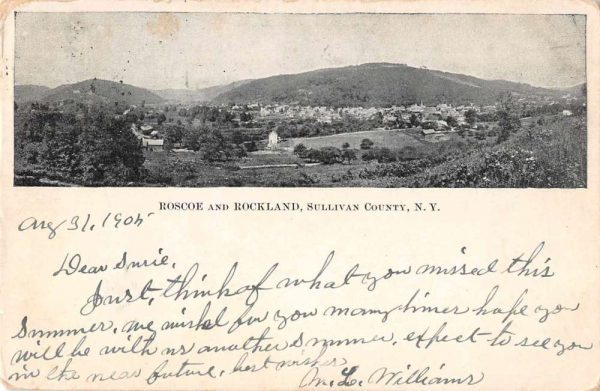 ROSCOE AND ROCKLAND, SULLIVAN COUNTY, N. Y.
Aug 31, 1905
Dear Susie,
Just, think of what you missed this
Summer, we wished for you many times hope you
will be with us another Summer. expect to see you
in the near future, best wishes
M. L. Williams